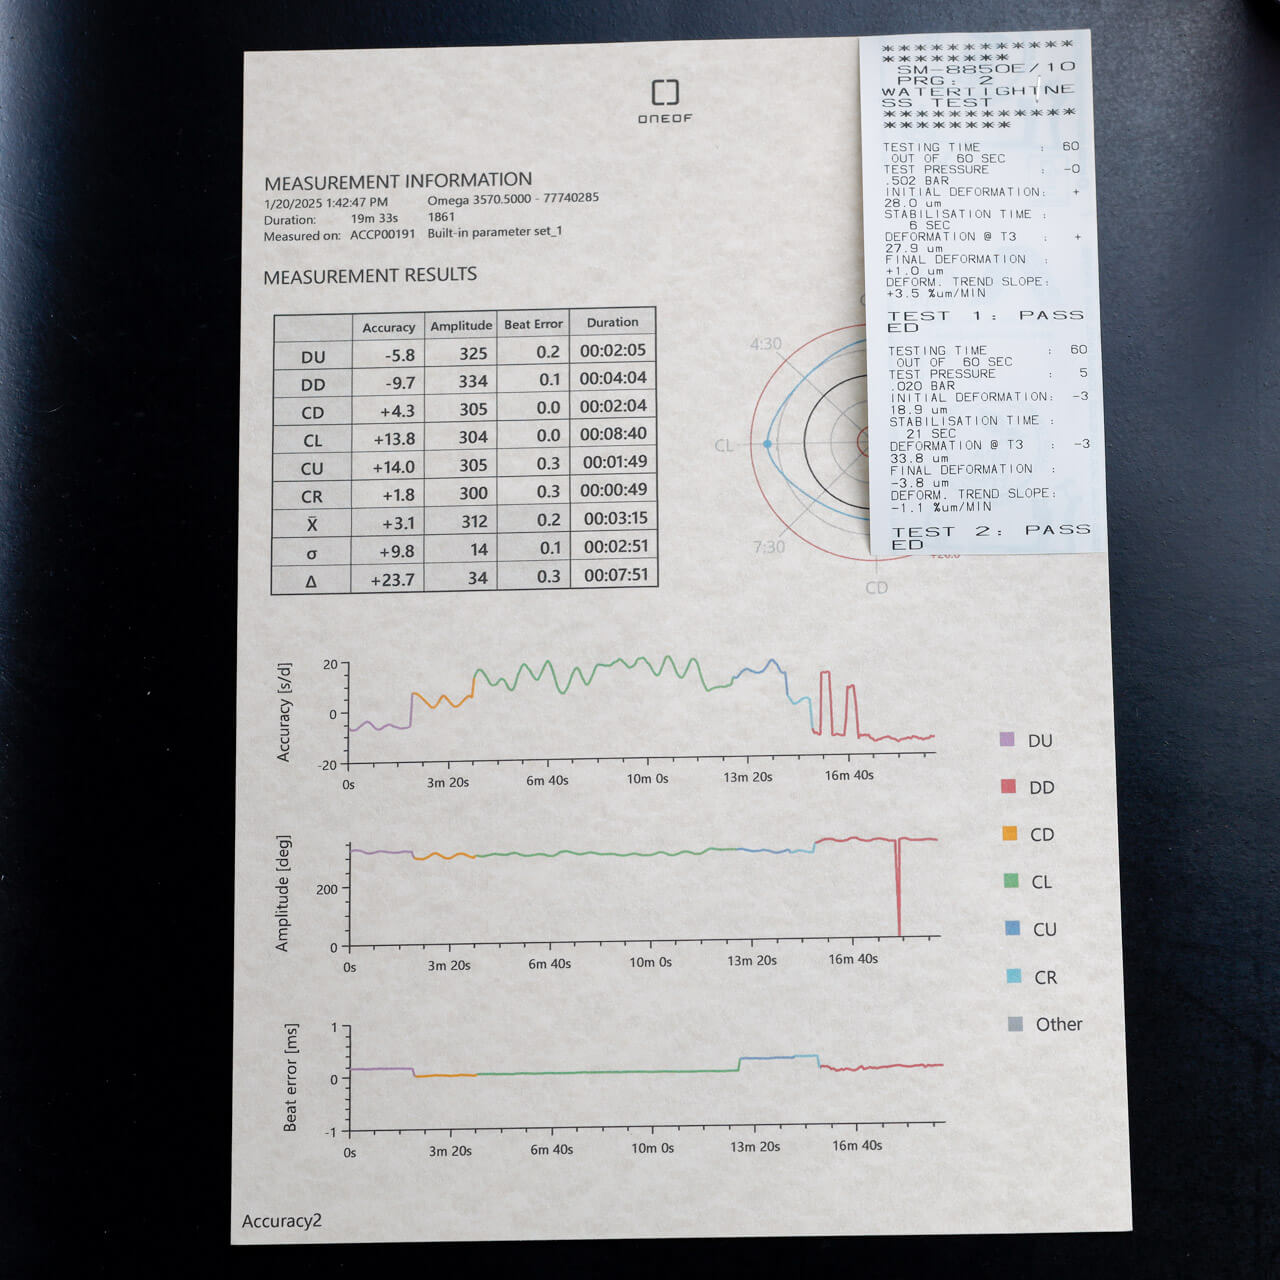 ONEOF
MEASUREMENT INFORMATION
1/20/2025 1:42:47 PM Omega 3570.5000 - 77740285
Duration: 19m 33s 1861
Measured on: ACCP00191 Built-in parameter set_1
MEASUREMENT RESULTS
Accuracy Amplitude Beat Error Duration
DU -5.8 325 0.2 00:02:05
DD -9.7 334 0.1 00:04:04
CD +4.3 305 0.0 00:02:04
CL +13.8 304 0.0 00:08:40
CU +14.0 305 0.3 00:01:49
CR +1.8 300 0.3 00:00:49
X̄ +3.1 312 0.2 00:03:15
σ +9.8 14 0.1 00:02:51
Δ +23.7 34 0.3 00:07:51
4:30
CL
7:30
CD
************
********
SM-8850E/10
PRG: 2
WATERTIGHTNE
SS TEST
************
********
TESTING TIME : 60
OUT OF 60 SEC
TEST PRESSURE : -0
.502 BAR
INITIAL DEFORMATION: +
28.0 um
STABILISATION TIME :
6 SEC
DEFORMATION @ T3 : +
27.9 um
FINAL DEFORMATION :
+1.0 um
DEFORM. TREND SLOPE:
+3.5 %um/MIN
TEST 1: PASS
ED
TESTING TIME : 60
OUT OF 60 SEC
TEST PRESSURE : 5
.020 BAR
INITIAL DEFORMATION: -3
18.9 um
STABILISATION TIME :
21 SEC
DEFORMATION @ T3 : -3
33.8 um
FINAL DEFORMATION :
-3.8 um
DEFORM. TREND SLOPE:
-1.1 %um/MIN
TEST 2: PASS
ED
Accuracy [s/d]
20
0
-20
0s 3m 20s 6m 40s 10m 0s 13m 20s 16m 40s
Amplitude [deg]
200
0
0s 3m 20s 6m 40s 10m 0s 13m 20s 16m 40s
Beat error [ms]
1
0
-1
0s 3m 20s 6m 40s 10m 0s 13m 20s 16m 40s
DU
DD
CD
CL
CU
CR
Other
Accuracy2